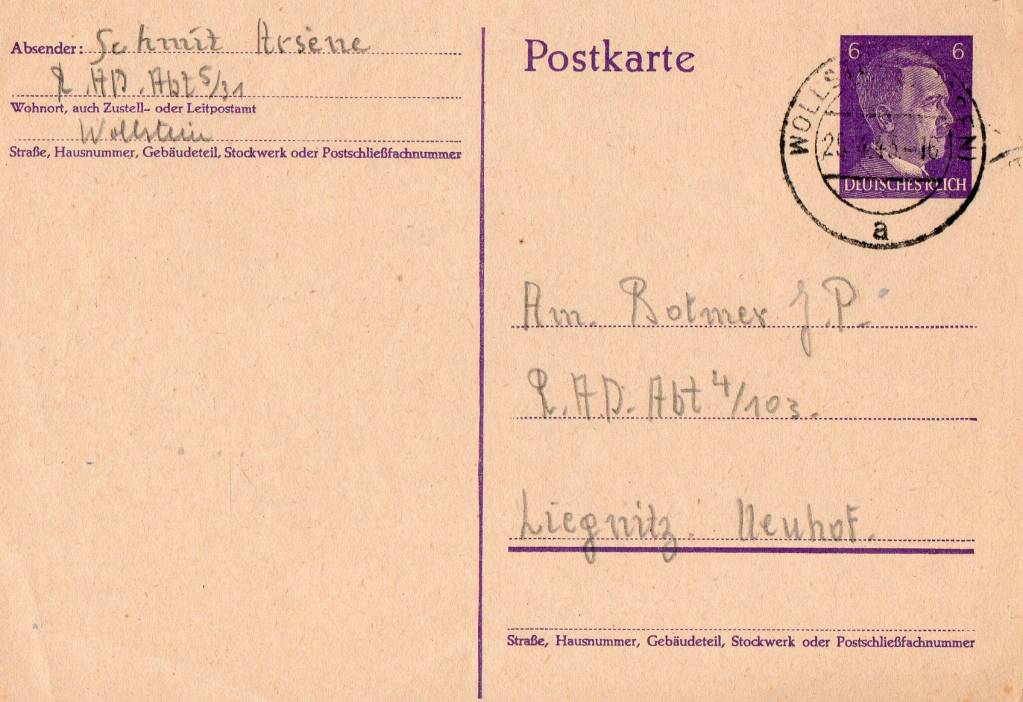 Absender: Schmit Arsène
R.AD. Abt 5/31
Wohnort, auch Zustell- oder Leitpostamt
Wollstein
Straße, Hausnummer, Gebäudeteil, Stockwerk oder Postschließfachnummer
Postkarte
6 6
DEUTSCHES REICH
a
Am. Botmer J.P.
R.AD. Abt 4/103.
Liegnitz. Neuhof.
Straße, Hausnummer, Gebäudeteil, Stockwerk oder Postschließfachnummer